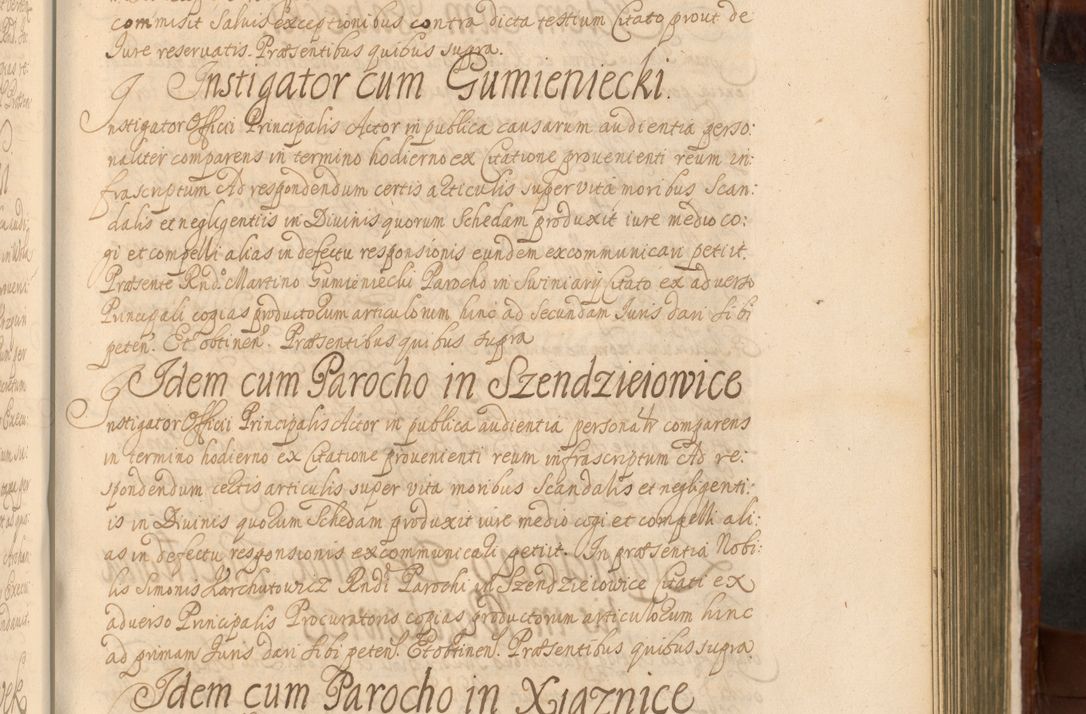 commisit Salvis exceptionibus contra dicta testium Citato prout de
Jure reservatis. Præsentibus quibus supra.
Instigator cum Gumieniecki.
Instigator Officii Principalis Actor in publica causarum audientia perso:
naliter comparens in termino hodierno ex Citatione provenienti reum in:
frascriptum Ad respondendum certis articulis super vita moribus Scan:
dalis et negligentiis in Divinis quorum Schedam produxit iure medio co:
gi et compelli alias in defectu responsionis eundem excommunicari petiit.
Præsente Rndo Martino Gumieniecki Parocho in Swiniary Citato ex adverso
Principali copias productorum articulorum hinc ad secundam Juris dari sibi
peten. Et obtinen. Præsentibus quibus supra
Idem cum Parocho in Szendzieiowice
Instigator Officii Principalis Actor in publica audientia personalr comparens
in termino hodierno ex Citatione provenienti reum infrascriptum Ad re:
spondendum certis articulis super vita moribus Scandalis et negligenti:
is in Divinis quorum Schedam produxit iure medio cogi et compelli ali:
as in defectu responsionis excommunicari petiit. In præsentia Nobi:
lis Simonis Karchutowicz Rndi Parochi in Szendzieiowice Citati ex
adverso Principalis Procuratoris copias productorum articulorum hinc
ad primam Juris dari sibi peten. Et obtinen. Præsentibus quibus supra
Idem cum Parocho in Xiaznice